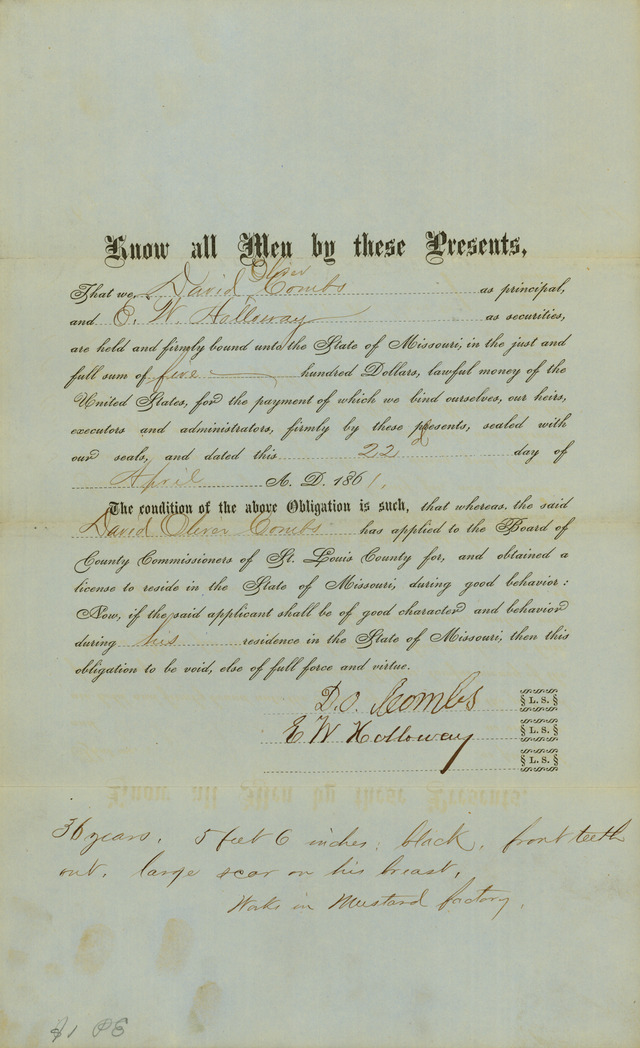 Know all Men by these Presents,
That we, David Oliver Combs as principal,
and E. W. Halloway as securities,
are held and firmly bound unto the State of Missouri, in the just and
full sum of five hundred Dollars, lawful money of the
United States, for the payment of which we bind ourselves, our heirs,
executors and administrators, firmly by these presents, sealed with
our seals, and dated this 22d day of
April A. D. 1861.
The condition of the above Obligation is such, that whereas, the said
David Oliver Combs has applied to the Board of
County Commissioners of St. Louis County for, and obtained a
license to reside in the State of Missouri, during good behavior:
Now, if the said applicant shall be of good character and behavior
during his residence in the State of Missouri, then this
obligation to be void, else of full force and virtue.
D. O. Combs L. S.
E W Holloway L. S.
L. S.
36 years, 5 feet 6 inches, black, front teeth
out, large scar on his breast,
Works in Mustard factory.